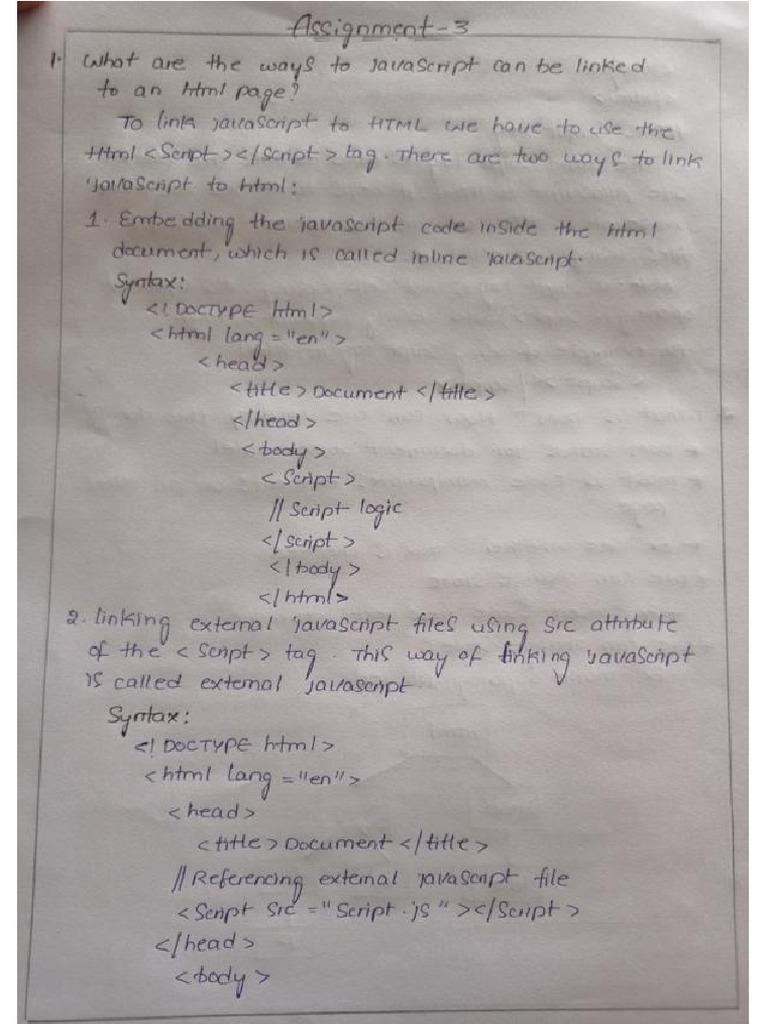 Assignment-3
1. What are the ways to JavaScript can be linked
to an html page?
To link javascript to HTML we have to use the
Html <Script></script> tag. There are two ways to link
JavaScript to html:
1. Embedding the javascript code inside the html
document, which is called inline javascript.
Syntax:
<! DOCTYPE html>
<html lang = "en">
<head>
<title> Document </title>
</head>
<body>
<Script>
// Script logic
</script>
</body>
</html>
2. linking external javascript files using src attribute
of the <script> tag. This way of linking javaScript
is called external javascript.
Syntax:
<! DOCTYPE html>
<html lang = "en">
<head>
<title> Document </title>
// Referencing external javascript file
<Script Src = "Script.js"></Script>
</head>
<body>